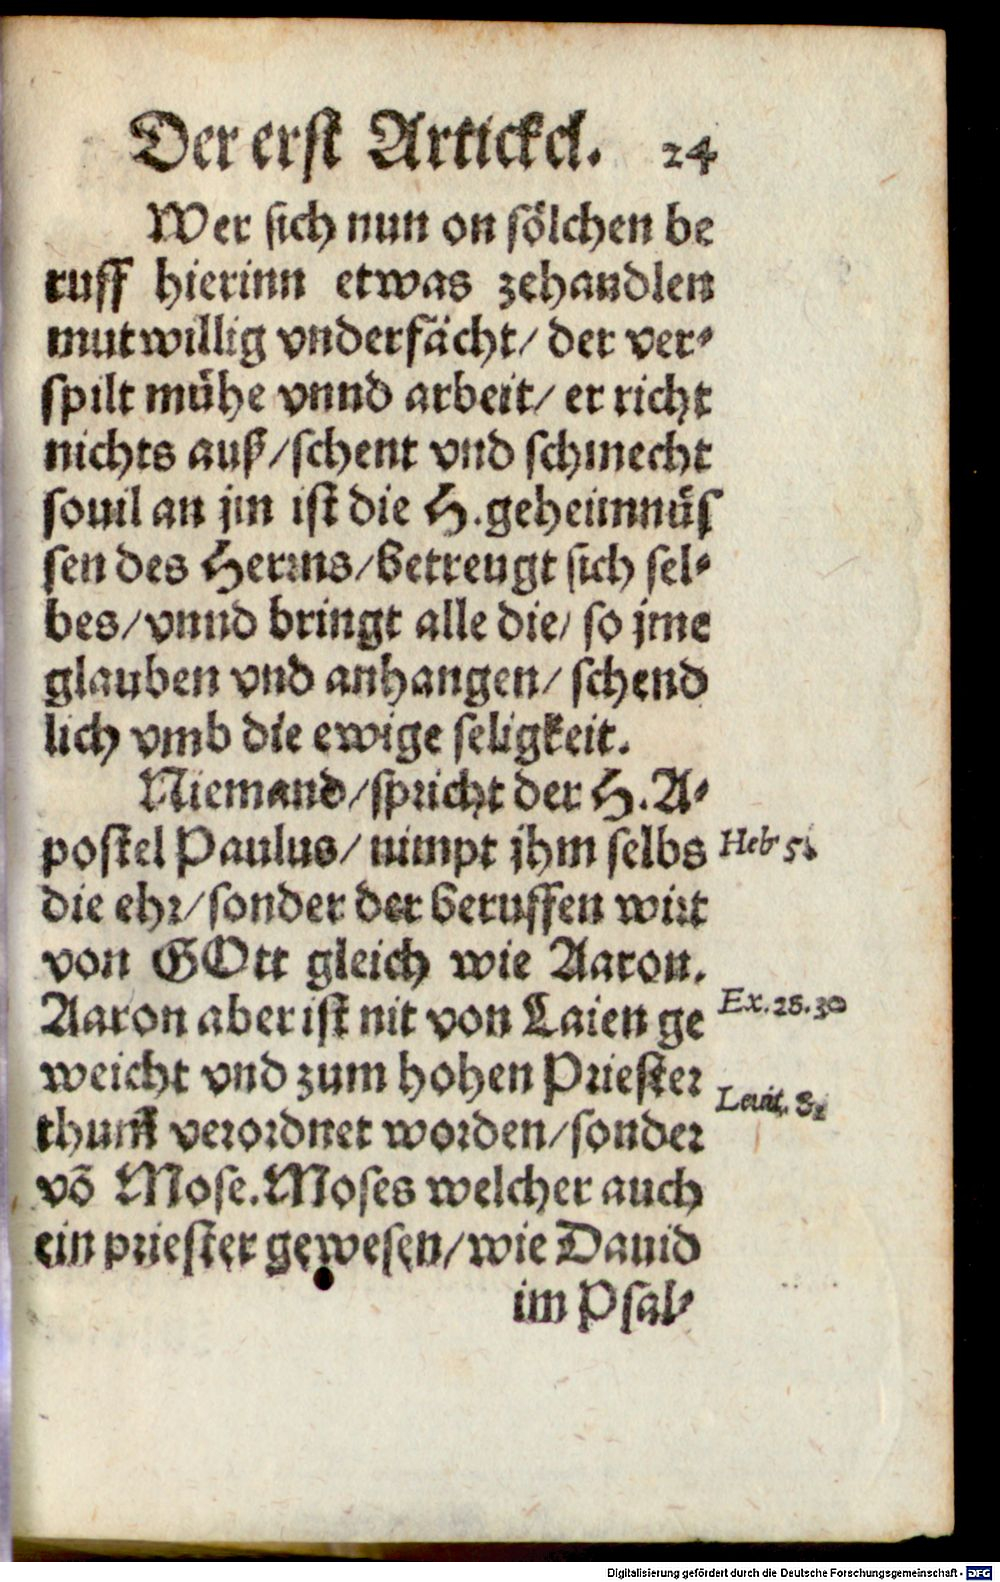 Der erst Artickel. 24
Wer sich nun on sölchen be
ruff hierinn etwas zehandlen
mutwillig vnderfächt/ der ver⸗
spilt mühe vnnd arbeit/ er richt
nichts auß/ schent vnd schmecht
souil an jm ist die H. geheimnüs
sen des Herrns/ betreugt sich sel⸗
bes/ vnnd bringt alle die/ so jme
glauben vnd anhangen/ schend
lich vmb die ewige seligkeit.
Niemand/ spricht der H. A⸗
postel Paulus/ nimpt jhm selbs
Heb 5.
die ehr/ sonder der beruffen wirt
von GOtt gleich wie Aaron.
Aaron aber ist nit von Laien ge
Ex. 28. 30
weicht vnd zum hohen Priester
Leuit. 8.
thumb verordnet worden/ sonder
võ Mose. Moses welcher auch
ein priester gewesen/ wie Dauid
im Psal⸗
Digitalisierung gefördert durch die Deutsche Forschungsgemeinschaft - DFG